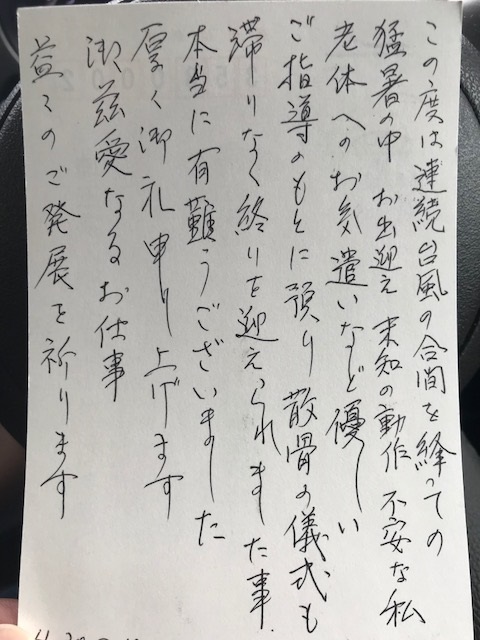 この度は連続台風の合間を縫っての
猛暑の中 お出迎え 未知の動作 不安な私
老体へのお気遣いなど優しい
ご指導のもとに預り 散骨の儀式も
滞りなく終りを迎えられました事
本当に有難うございました
厚く御礼申し上げます
御慈愛なるお仕事
益々のご発展を祈ります